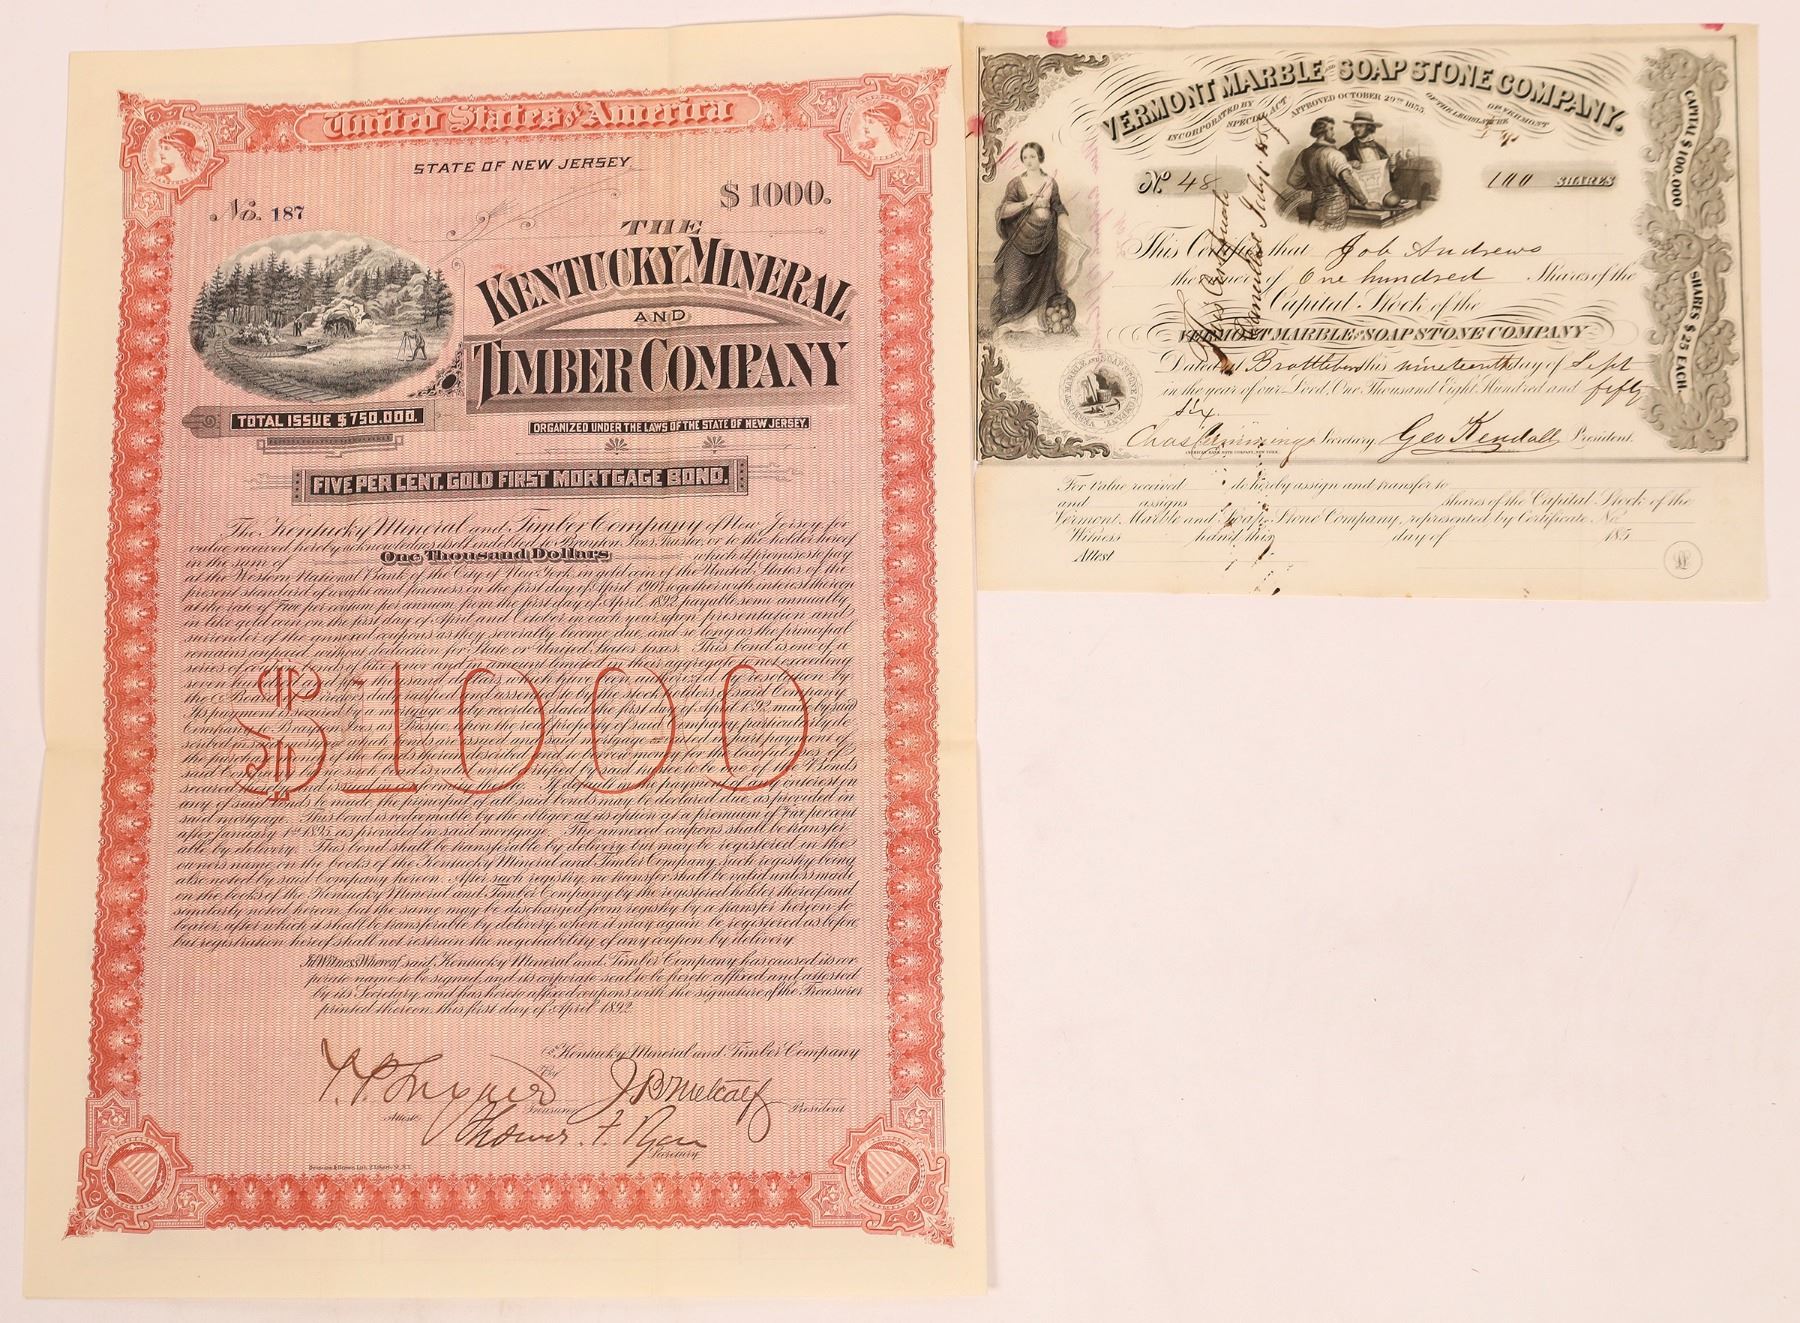 United States of America
STATE OF NEW JERSEY
No. 187
$1000.
THE
KENTUCKY MINERAL
AND
TIMBER COMPANY
TOTAL ISSUE $750.000.
ORGANIZED UNDER THE LAWS OF THE STATE OF NEW JERSEY.
FIVE PER CENT. GOLD FIRST MORTGAGE BOND.
The Kentucky Mineral and Timber Company of New Jersey, for
value received, hereby acknowledges itself indebted to Brayton Ives, Trustee, or to the holder hereof
in the sum of One Thousand Dollars which it promises to pay
at the Western National Bank of the City of New York in gold coin of the United States of the
present standard of weight and fineness on the first day of April 1907, together with interest thereon
at the rate of Five per centum per annum, from the first day of April 1892, payable semi-annually
in like gold coin on the first day of April and October in each year, upon presentation and
surrender of the annexed coupons as they severally become due, and so long as the principal
remains unpaid, without deduction for State or United States taxes. This bond is one of a
series of coupon bonds of like tenor and in amount limited in their aggregate not exceeding
seven hundred and fifty thousand dollars, which have been authorized by resolution by
the Board of Directors duly ratified and assented to by the stockholders of said Company.
Its payment is secured by a mortgage duly recorded dated the first day of April 1892, made by said
Company to Brayton Ives, as Trustee, upon the real property of said Company, particularly de-
scribed in said mortgage which bonds are issued and said mortgage
the purchase of the lands therein described and to borrow money for the lawful uses of
said Company no such bond is valid until certified by said trustee to be one of the Bonds
secured thereby and issued in conformity thereto. If default in the payment of any interest on
any of said bonds be made the principal of all said bonds may be declared due, as provided in
said mortgage. This bond is redeemable by the obligor at its option at a premium of Five per cent
after January 1st 1895, as provided in said mortgage. The annexed coupons shall be transfer-
able by delivery. This bond shall be transferable by delivery but may be registered in the
owners name on the books of the Kentucky Mineral and Timber Company, such registry being
also noted by said Company hereon. After such registry, no transfer shall be valid unless made
on the books of the Kentucky Mineral and Timber Company by the registered holder thereof and
similarly noted hereon, but the same may be discharged from registry by a transfer hereon to
bearer, after which it shall be transferable by delivery, when it may again be registered as before,
but registration hereof shall not restrain the negotiability of any coupon by delivery.
$1000
In Witness Whereof, said Kentucky Mineral and Timber Company has caused its cor-
porate name to be signed, and its corporate seal to be hereto affixed and attested
by its Secretary, and has hereto affixed coupons with the signature of the Treasurer
printed thereon, this first day of April 1892.
Kentucky Mineral and Timber Company
By
Treasurer J B Metcalf President
Attest: Thomas F. Ryan
Secretary
VERMONT MARBLE AND SOAP STONE COMPANY.
INCORPORATED BY SPECIAL ACT APPROVED OCTOBER 29TH 1855 OF THE LEGISLATURE OF VERMONT
No. 48
100 SHARES
CAPITAL $100,000
SHARES $25 EACH.
This Certifies that Job Andrews
the owner of One hundred Shares of the
Capital Stock of the
VERMONT MARBLE AND SOAP STONE COMPANY
Dated at Brattleboro this nineteenth day of Sept
in the year of our Lord, One Thousand Eight Hundred and fifty
six.
Chas Cummings Secretary. Geo Kendall President.
AMERICAN BANK NOTE COMPANY, NEW YORK.
VERMONT MARBLE AND SOAPSTONE COMPANY
This Certificate
July 1
For value received do hereby assign and transfer to
and assigns shares of the Capital Stock of the
Vermont Marble and Soap Stone Company, represented by Certificate No.
Witness hand this day of 185
Attest